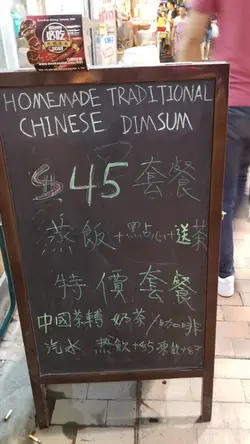 HOMEMADE TRADITIONAL
CHINESE DIMSUM
$45 套餐
蒸飯+點心+送茶
特價套餐
中國茶轉奶茶/咖啡
汽水 熱飲+$5凍飲+$7